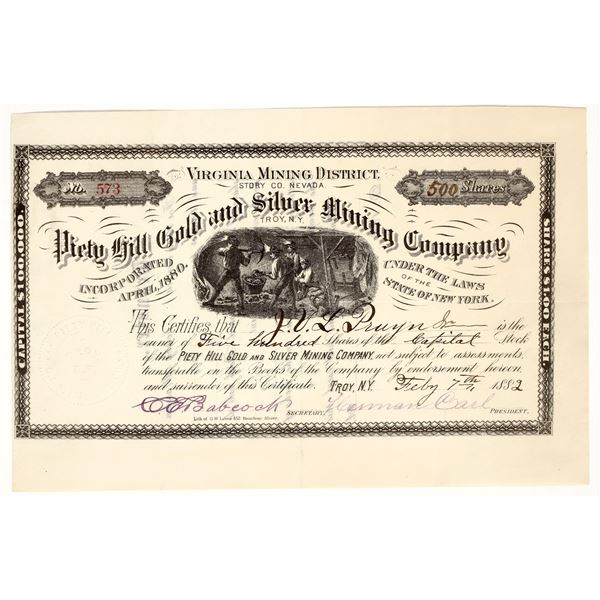 VIRGINIA MINING DISTRICT.
STORY CO. NEVADA.
No. 573
500 Shares
Piety Hill Gold and Silver Mining Company
TROY, N.Y.
INCORPORATED
APRIL, 1880.
UNDER THE LAWS
OF THE
STATE OF NEW YORK.
CAPITAL $100,000
SHARES $1.00 EACH.
This Certifies that J. V. L. Pruyn Jr is the
owner of Five hundred Shares of the Capital Stock
of the PIETY HILL GOLD AND SILVER MINING COMPANY, not subject to assessments,
transferable on the Books of the Company by endorsement hereon
and surrender of this Certificate. TROY, N.Y. Feby 7th 1882
Babcock SECRETARY. Herman Carl PRESIDENT.
Lith of